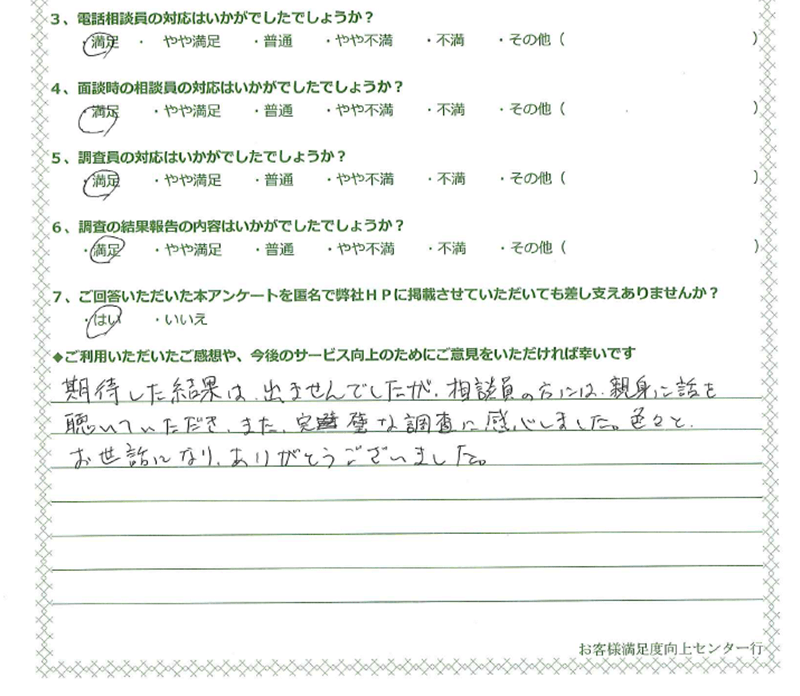 3、電話相談員の対応はいかがでしたでしょうか？
・満足 ・ やや満足 ・普通 ・やや不満 ・不満 ・その他（ ）
4、面談時の相談員の対応はいかがでしたでしょうか？
・満足 ・やや満足 ・普通 ・やや不満 ・不満 ・その他（ ）
5、調査員の対応はいかがでしたでしょうか？
・満足 ・やや満足 ・普通 ・やや不満 ・不満 ・その他（ ）
6、調査の結果報告の内容はいかがでしたでしょうか？
・満足 ・やや満足 ・普通 ・やや不満 ・不満 ・その他（ ）
7、ご回答いただいた本アンケートを匿名で弊社ＨＰに掲載させていただいても差し支えありませんか？
・はい ・いいえ
◆ご利用いただいたご感想や、今後のサービス向上のためにご意見をいただければ幸いです
期待した結果は、出ませんでしたが、相談員の方には、親身に話を
聴いていただき、また、完璧な調査に感心しました。色々と、
お世話になり、ありがとうございました。
お客様満足度向上センター行